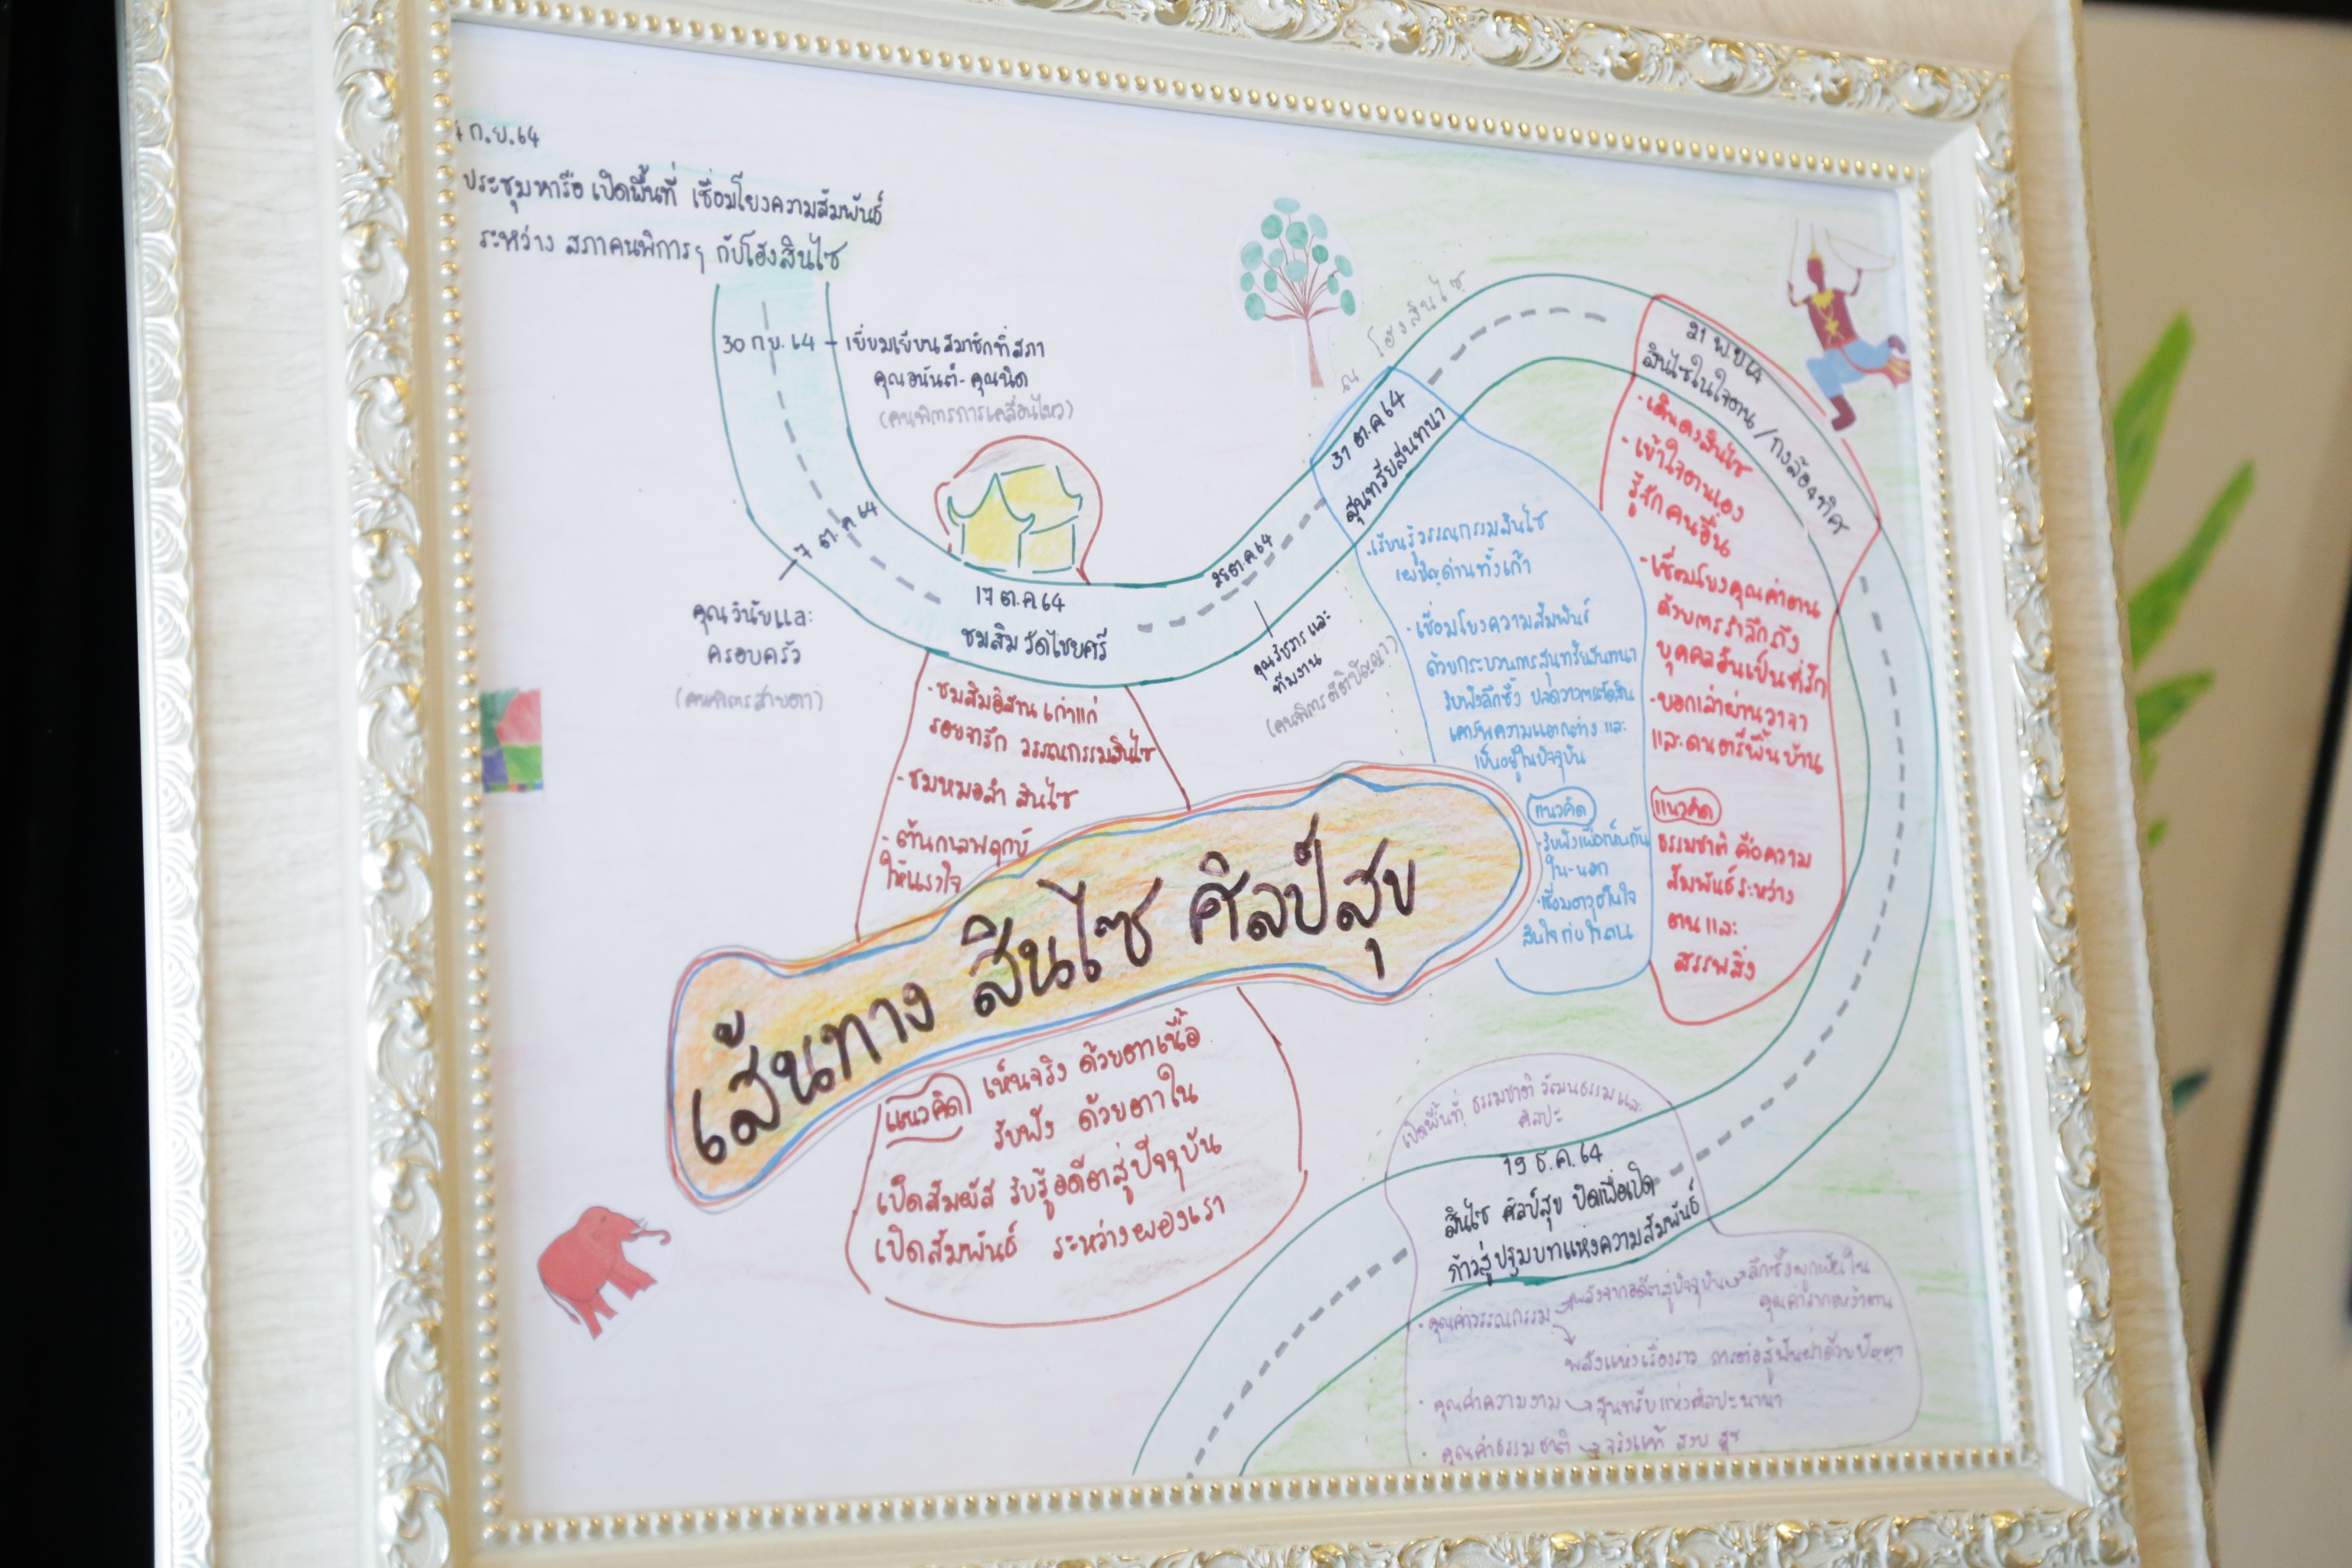 ก.ย.64
ประชุมหารือ เปิดพื้นที่ เชื่อมโยงความสัมพันธ์
ระหว่าง สภาคนพิการฯ กับโฮงสินไซ
30 ก.ย. 64 - เยี่ยมเยียนสมาชิกที่สภา
คุณอนันต์-คุณนิด
(คนพิการการเคลื่อนไหว)
7 ต.ค 64
คุณวินัยและ
ครอบครัว
(คนพิการสายตา)
17 ต.ค 64
ชมสิม วัดไชยศรี
- ชมสิมอิสาน เก่าแก่
รอยจารึก วรรณกรรมสินไซ
- ชมหมอลำ สินไซ
- ต้นกาลพฤกษ์
ให้แรงใจ
ต.ค 64
ทีมงาน
(คนพิการสติปัญญา)
ณ โฮงสินไซ
31 ต.ค 64
สุนทรียสนทนา
- เรียนรู้วรรณกรรมสินไซ
เผชิญด่านทั้งเก้า
- เชื่อมโยงความสัมพันธ์
ด้วยกระบวนการสุนทรียสนทนา
รับฟังลึกซึ้ง ปลดวางการตัดสิน
เคารพความแตกต่าง และ
เป็นอยู่ในปัจจุบัน
แนวคิด
- รับฟังเพื่อเห็นกัน
ใน-นอก
สินไซ กับใจตน
21 พ.ย 64
สินไซในใจตน / กงล้อ4ทิศ
- เดินดงสินไซ
- เข้าใจตนเอง
รู้จักคนอื่น
- เชื่อมโยงคุณค่าตน
ด้วยการรำลึกถึง
บุคคลอันเป็นที่รัก
- บอกเล่าผ่านวาจา
และดนตรีพื้นบ้าน
แนวคิด
ธรรมชาติ คือความ
สัมพันธ์ระหว่าง
ตน และ
สรรพสิ่ง
เส้นทาง สินไซ ศิลป์สุข
แนวคิด เห็นจริง ด้วยตาเนื้อ
รับฟัง ด้วยตาใน
เปิดสัมผัส รับรู้อดีตสู่ปัจจุบัน
เปิดสัมพันธ์ ระหว่างผองเรา
เปิดพื้นที่ ธรรมชาติ วัฒนธรรม และ
ศิลปะ
19 ธ.ค.64
สินไซ ศิลป์สุข ปิดเพื่อเปิด
ก้าวสู่ปฐมบทแห่งความสัมพันธ์
- คุณค่าวรรณกรรม → พลังจากอดีตสู่ปัจจุบัน → ลึกซึ้งผูกพันใน
พลังแห่งเรื่องราว การต่อสู้ฟันฝ่าด้วยปัญญา
- คุณค่าความงาม → สุนทรียแห่งศิลปะนานา
- คุณค่าธรรมชาติ → จริงแท้ สงบ สุข